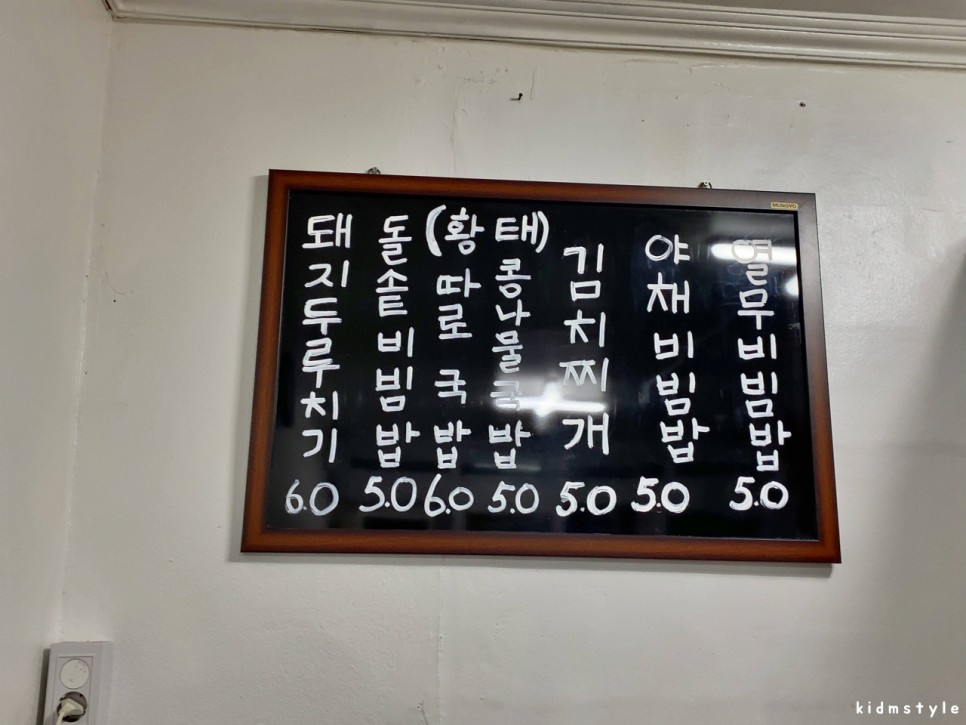 돼지두루치기 6.0
돌솥비빔밥 5.0
(황태)
따로국밥 6.0
콩나물국밥 5.0
김치찌개 5.0
야채비빔밥 5.0
열무비빔밥 5.0
MUNGYO
kidmstyle